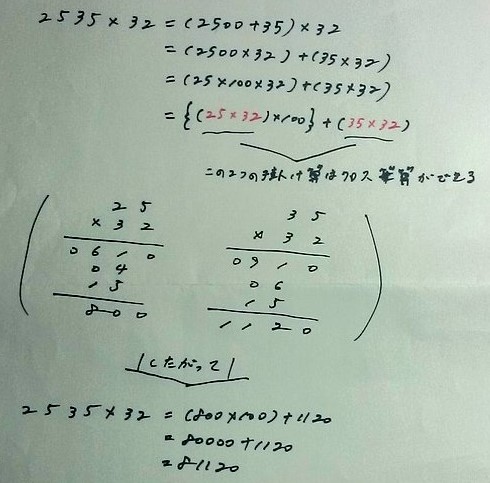 2535×32 = (2500+35)×32
= (2500×32)+(35×32)
= (25×100×32)+(35×32)
= {(25×32)×100}+(35×32)
この2つの掛け算はクロス算ができる
2 5
×3 2
0 6 1 0
0 4
1 5
8 0 0
3 5
× 3 2
0 9 1 0
0 6
1 5
1 1 2 0
したがって
2535×32 = (800×100)+1120
= 80000+1120
= 81120